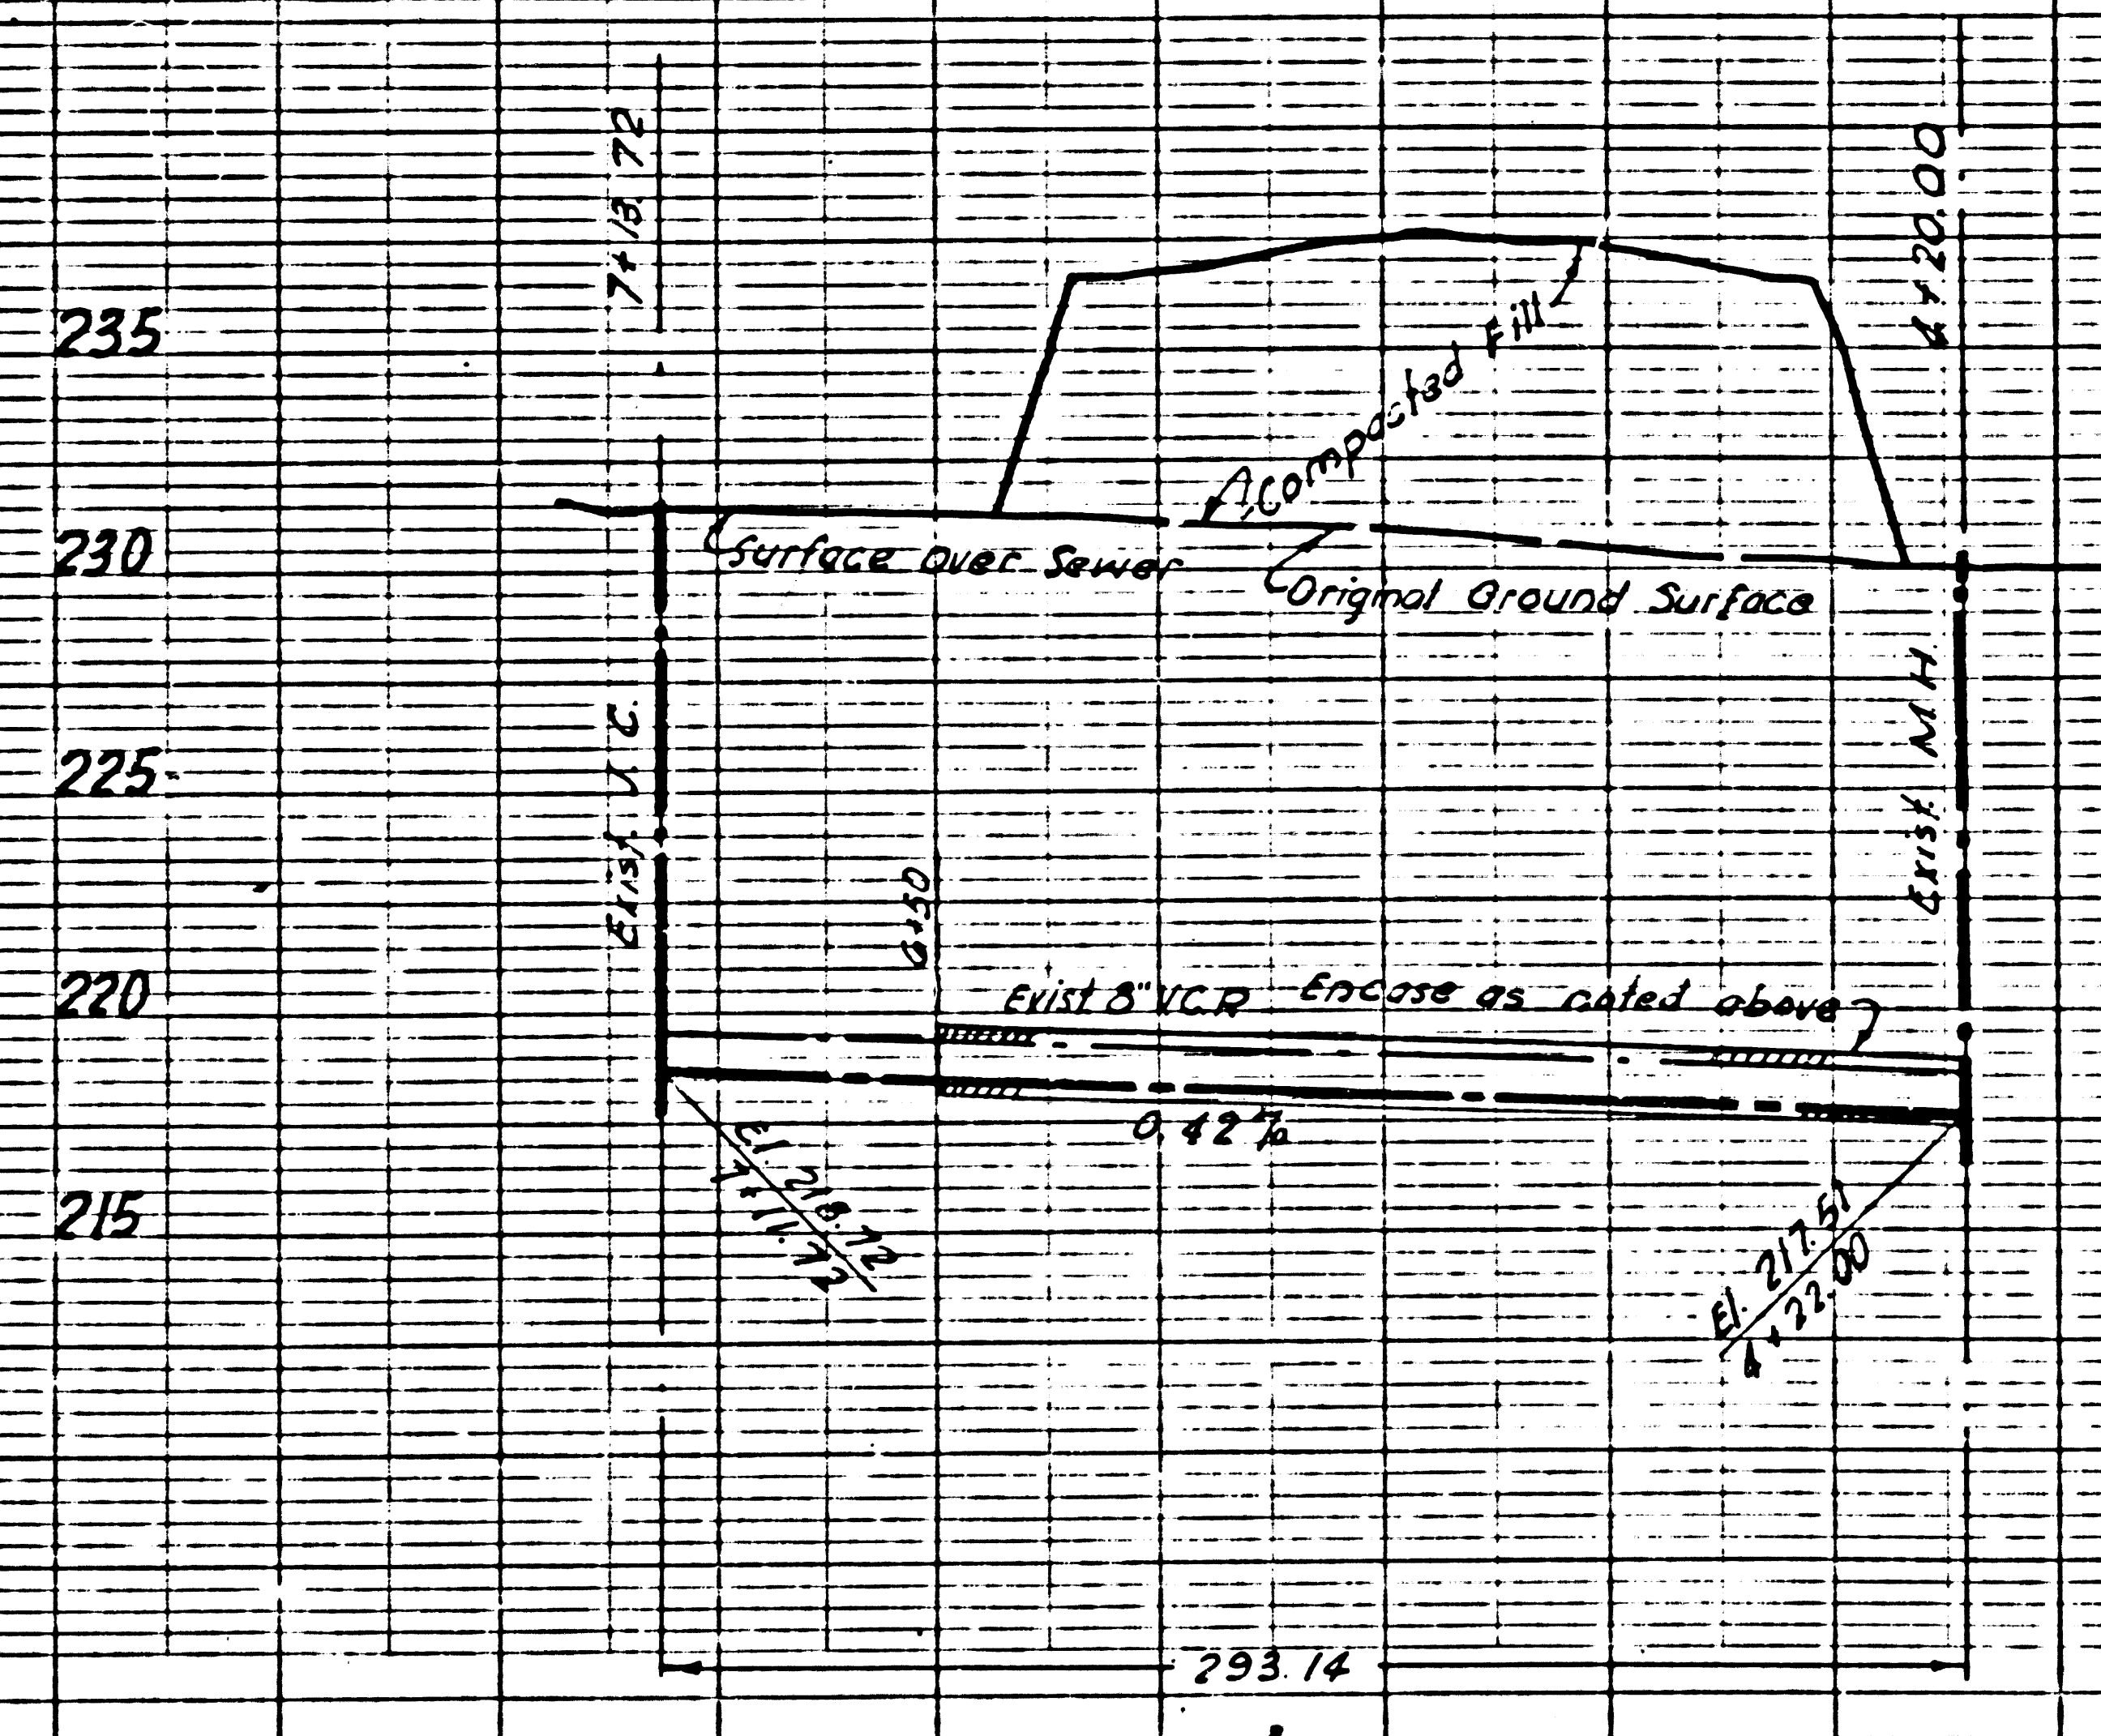 7+13.72
4+20.00
235
Compacted Fill
230
Surface Over Sewer
Original Ground Surface
Exist. J.C.
Exist. M.H.
225
6+50
220
Exist 8" V.C.P. Encase as noted above
0.42%
El. 218.72
7+11.72
215
El. 217.51
4+22.00
293.14